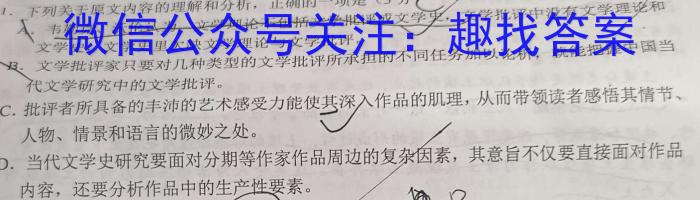 1. 下列关于原文内容的理解和分析，正确的一项是（3分
微信公众号关注：趣找答案
B. 文学批评家只要对几种类型的文学批评所承担的不同任务加以
中国当
代文学研究中的文学批评。
C. 批评者所具备的丰沛的艺术感受力能使其深入作品的肌理，从而带领读者感悟其情节、
人物、情景和语言的微妙之处。
D. 当代文学史研究要面对分期等作家作品周边的复杂因素，其意旨不仅要直接面对作品
内容，还要分析作品中的生产性要素。